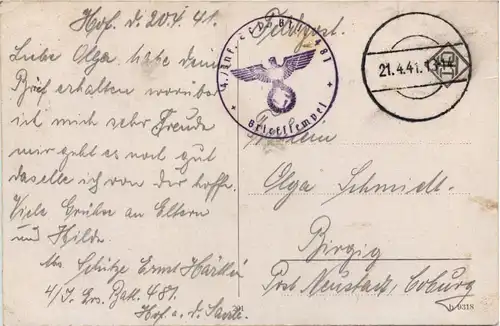 Hof. d. 20.4.41.
Liebe Olga habe dein
Brief erhalten worüber
ich mich sehr Freude
mir geht es noch gut
daselle ich von der hoffe.
Viele Grüße an Eltern
und Hilde
Abs Schütze Ernst
4/I. Ers. Batl. 481.
Hof a. d. Saale
Feldpost.
14./Inf. 481
Briefstempel
21.4.41.
Fräulein
Olga Schmidt.
Birgig
Post Neustadt, Coburg
b 0318